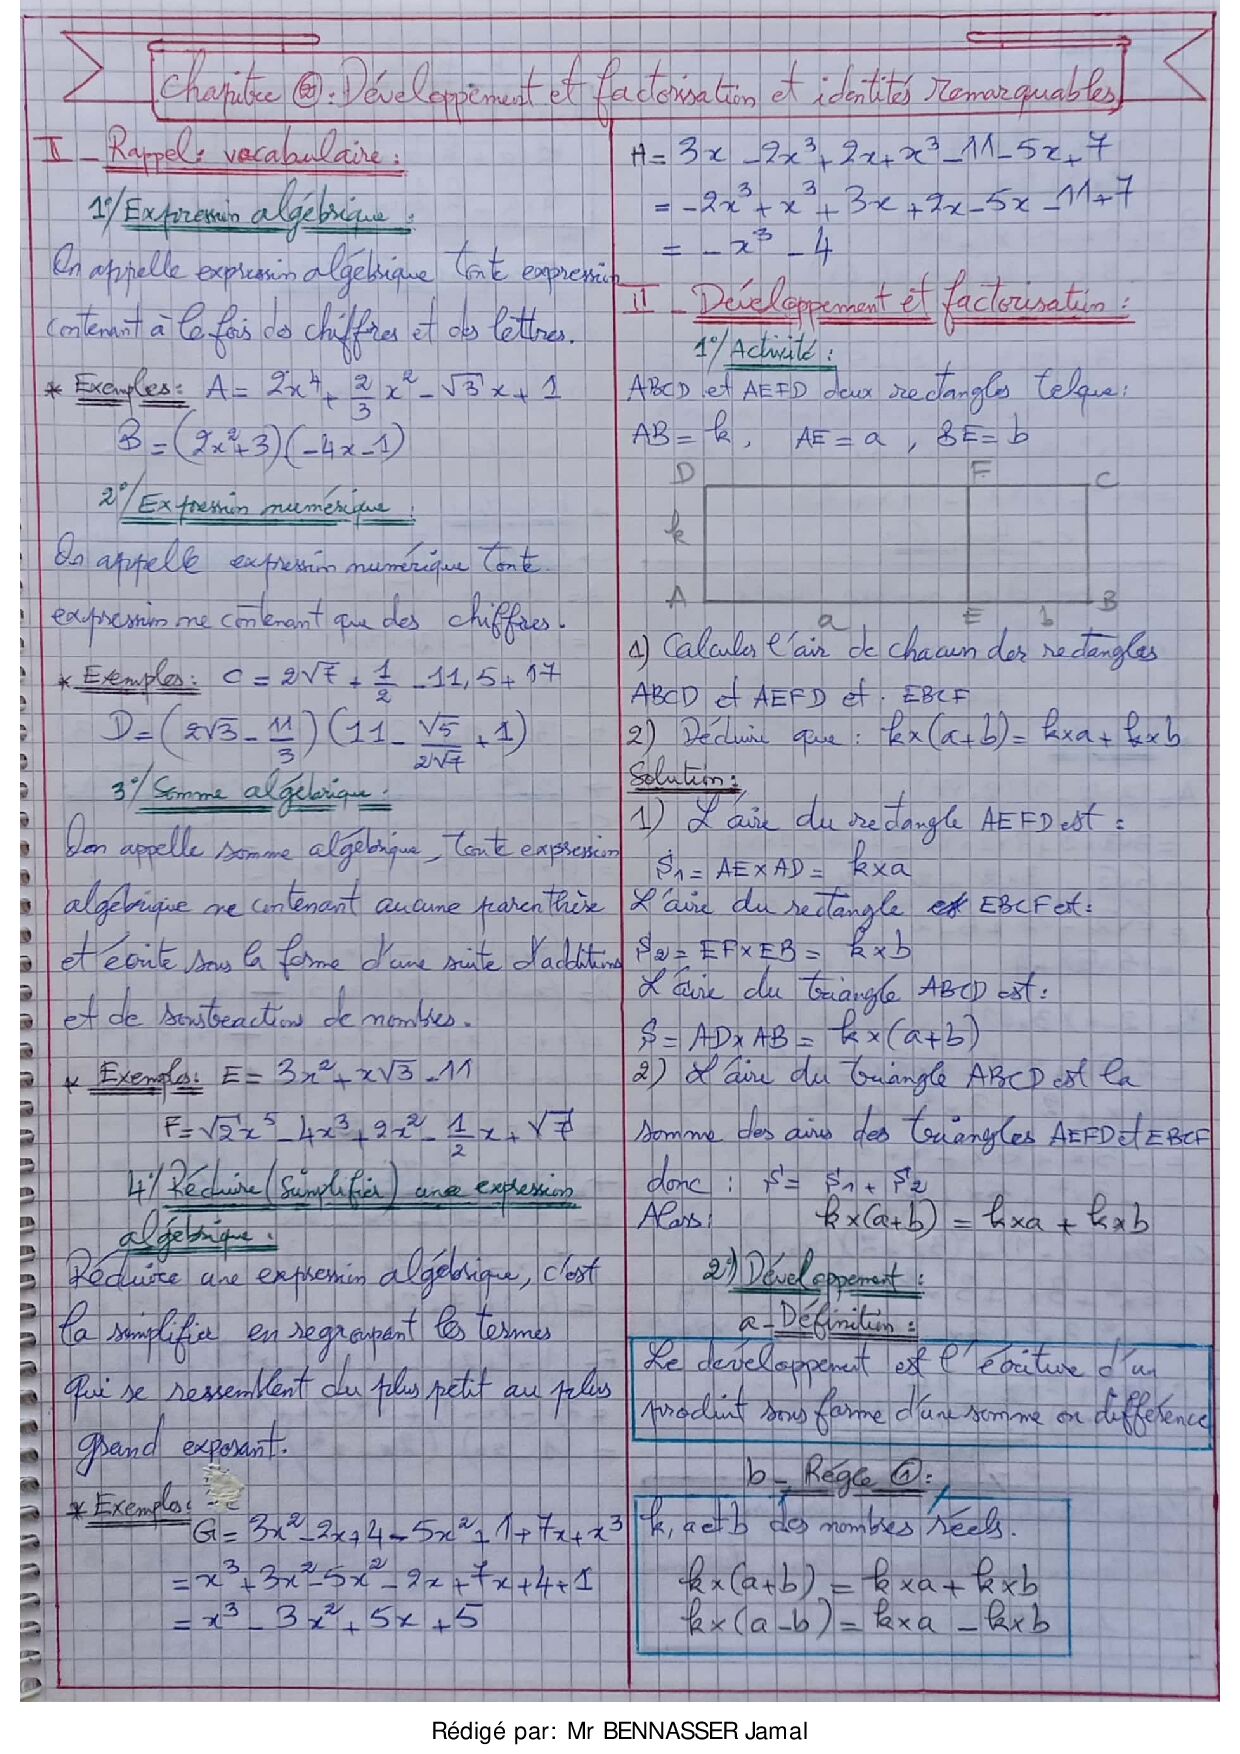 Chapitre : Développement et factorisation et identités remarquables
I - Rappel: vocabulaire :
1°/ Expression algébrique :
On appelle expression algébrique toute expression
contenant à la fois des chiffres et des lettres.
* Exemples: A = 2x⁴ + 2/3 x² - √3 x + 1
B = (2x² + 3)(-4x - 1)
2°/ Expression numérique :
On appelle expression numérique toute
expression ne contenant que des chiffres.
* Exemples: C = 2√7 + 1/2 - 11,5 + 17
D = (2√3 - 11/3)(11 - √5/2√7 + 1)
3°/ Somme algébrique :
On appelle somme algébrique, toute expression
algébrique ne contenant aucune parenthèse
et écrite sous la forme d'une suite d'additions
et de soustraction de nombres.
* Exemples: E = 3x² + x√3 - 11
F = √2 x⁵ - 4x³ + 2x² - 1/2 x + √7
4°/ Réduire (Simplifier) une expression
algébrique :
Réduire une expression algébrique, c'est
la simplifier en regroupant les termes
qui se ressemblent du plus petit au plus
grand exposant.
* Exemples:
G = 3x² - 2x + 4 - 5x² + 1 + 7x + x³
= x³ + 3x² - 5x² - 2x + 7x + 4 + 1
= x³ - 3x² + 5x + 5
H = 3x - 2x³ + 2x + x³ - 11 - 5x + 7
= -2x³ + x³ + 3x + 2x - 5x - 11 + 7
= -x³ - 4
II - Développement et factorisation :
1°/ Activité :
ABCD et AEFD deux rectangles telque :
AB = k, AE = a, BE = b
D F C
k
A a E b B
1) Calculer l'air de chacun des rectangles
ABCD et AEFD et EBCF
2) Déduire que : k×(a+b) = k×a + k×b
Solution :
1) L'aire du rectangle AEFD est :
S₁ = AE × AD = k×a
L'aire du rectangle EBCF est :
S₂ = EF × EB = k×b
L'aire du triangle ABCD est :
S = AD × AB = k×(a+b)
2) L'aire du triangle ABCD est la
somme des aires des triangles AEFD et EBCF
donc : S = S₁ + S₂
Alors : k×(a+b) = k×a + k×b
2°) Développement :
a - Définition :
Le développement est l'écriture d'un
produit sous forme d'une somme ou différence
b - Régle ① :
k, a et b des nombres réels.
k×(a+b) = k×a + k×b
k×(a-b) = k×a - k×b
Rédigé par: Mr BENNASSER Jamal